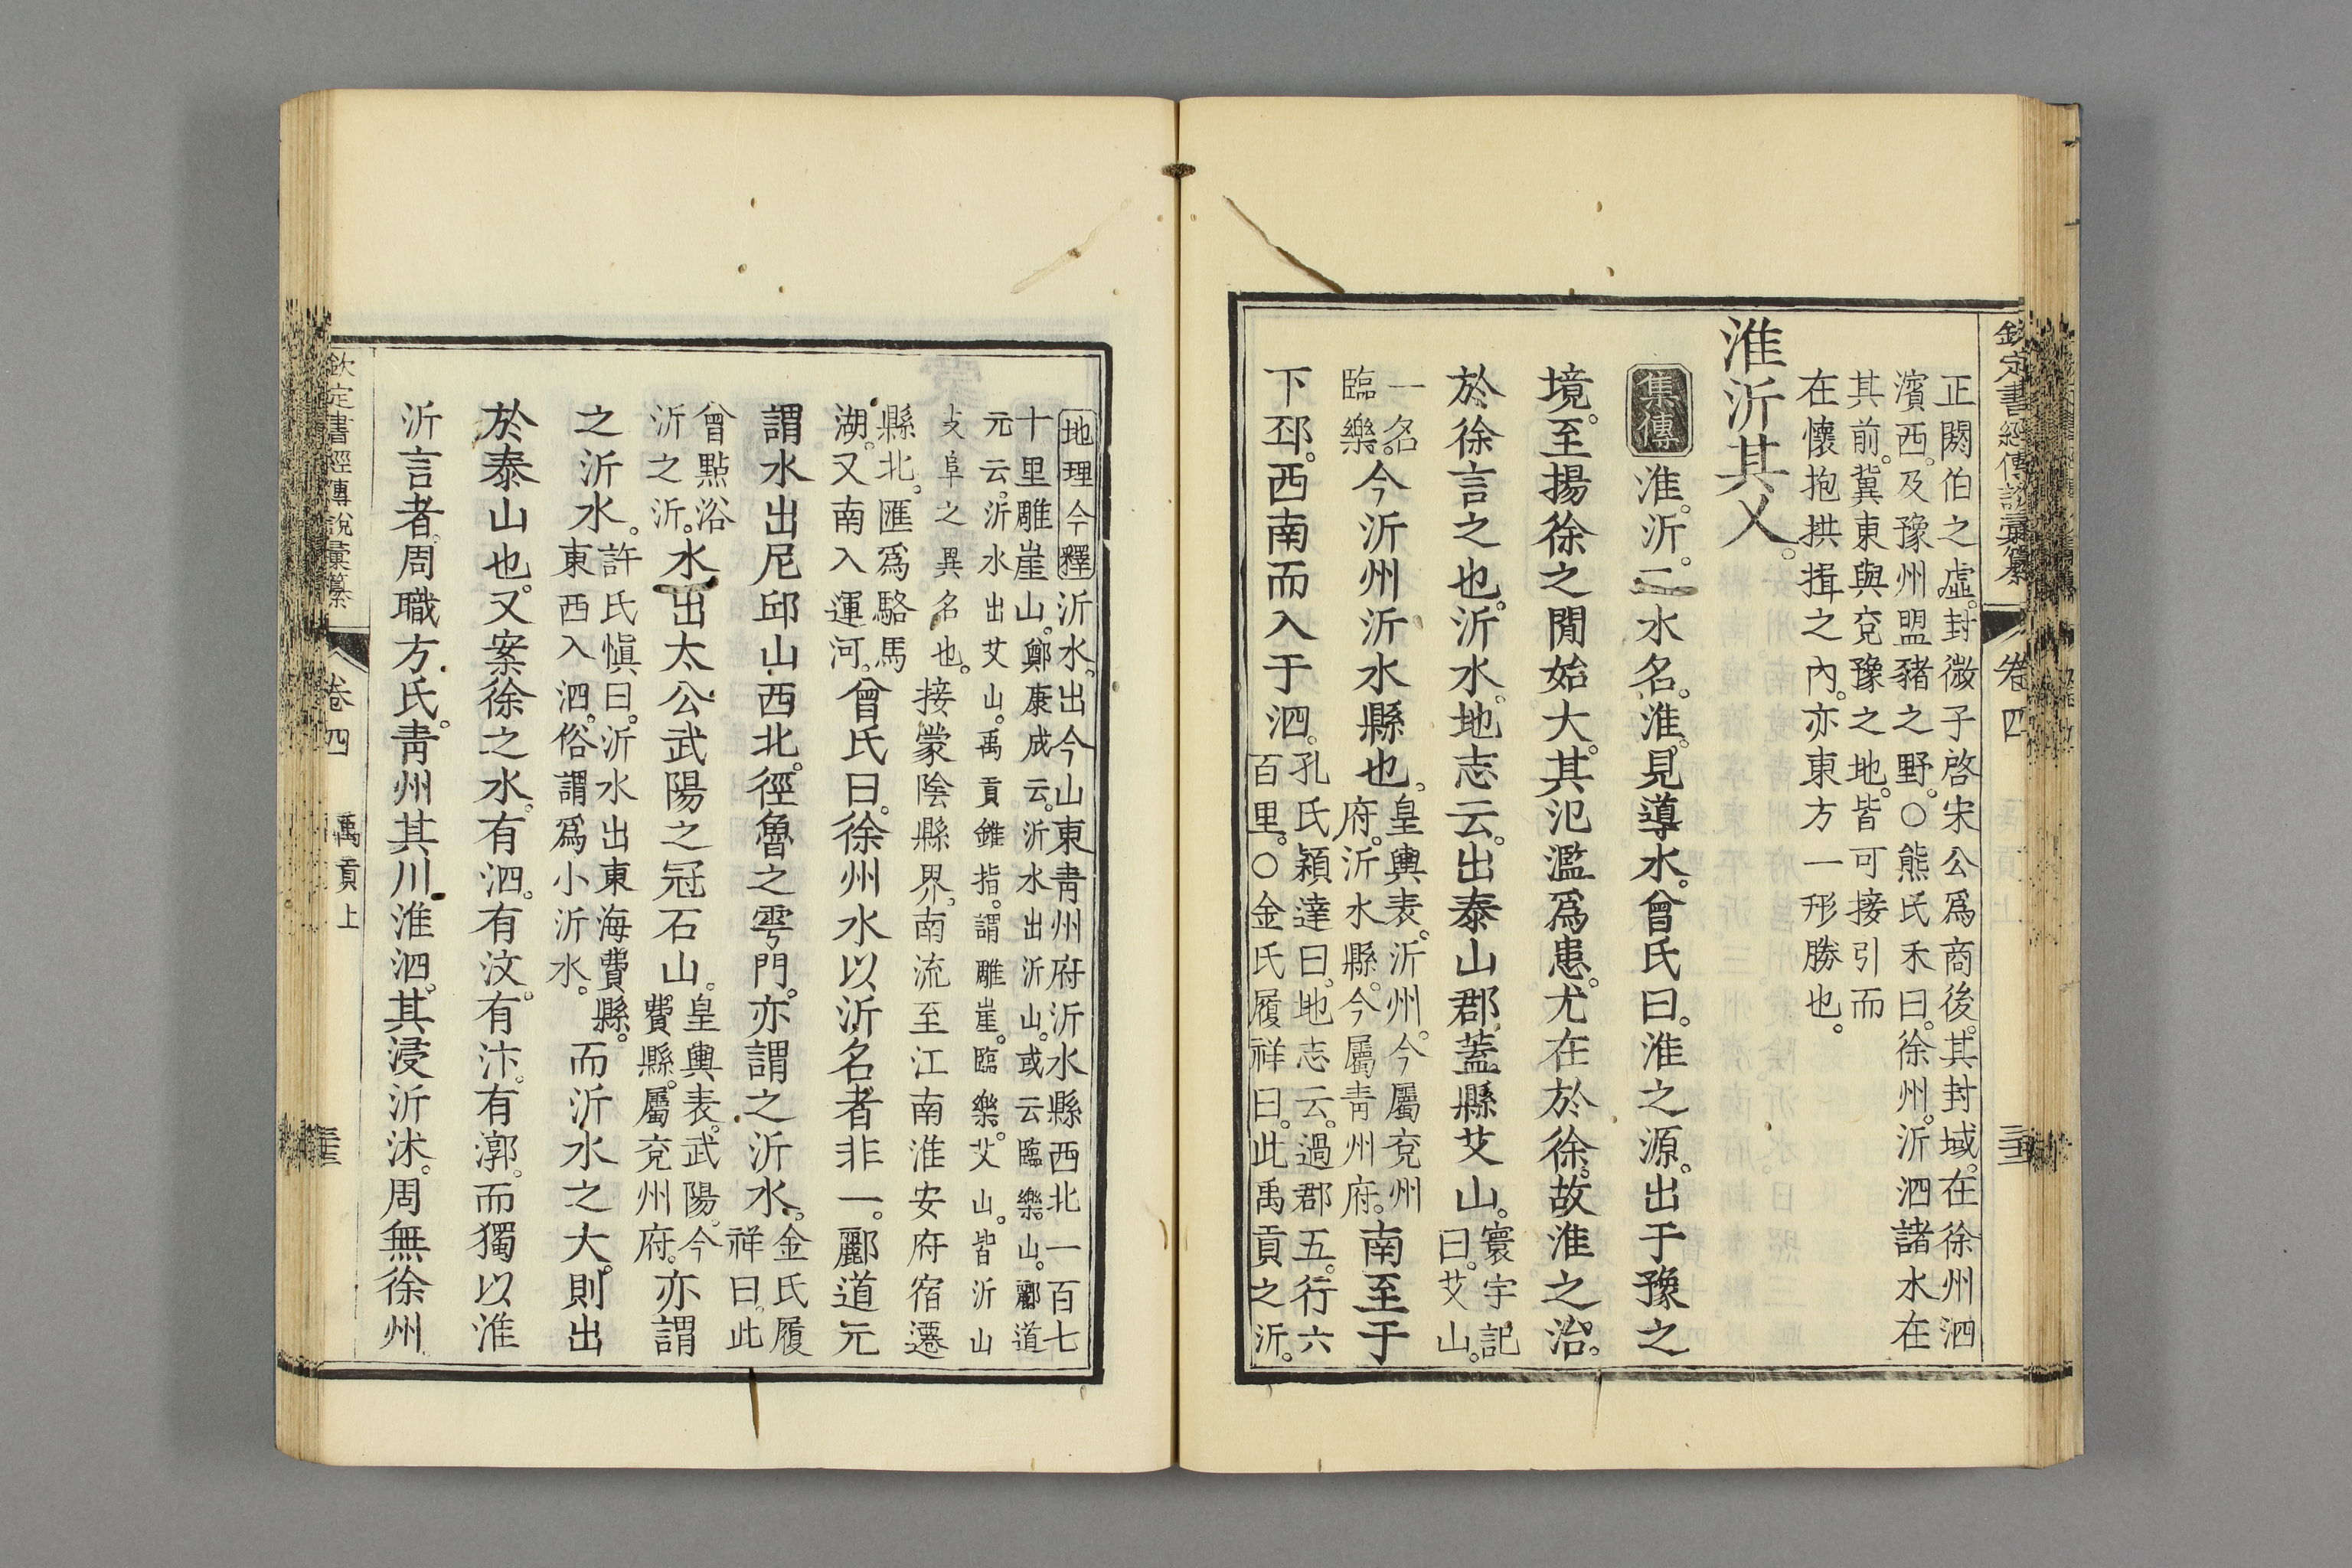 欽定書經傳說彙纂 卷四
正閼伯之虛。封微子啓宋公爲商後。其封域。在徐州泗
濱西。及豫州盟豬之野。○熊氏禾曰。徐州。沂泗諸水在
其前。冀東與兗豫之地。皆可接引而
在懷抱拱揖之內。亦東方一形勝也。
淮沂其乂。
集傳 淮。沂。二水名。淮。見導水。曾氏曰。淮之源。出于豫之
境。至揚徐之閒始大。其氾濫爲患。尤在於徐。故淮之治。
於徐言之也。沂水。地志云。出泰山郡蓋縣艾山。寰宇記
曰。艾山。
一名
臨樂。今沂州沂水縣也。皇輿表。沂州。今屬兗州
府。沂水縣。今屬靑州府。南至于
下邳。西南而入于泗。孔氏穎達曰。地志云。過郡五。行六
百里。○金氏履祥曰。此禹貢之沂。
地理今釋 沂水。出今山東靑州府沂水縣西北一百七
十里雕崖山。鄭康成云。沂水出沂山。或云臨樂山。酈道
元云。沂水出艾山。禹貢錐指。謂雕崖。臨樂。艾山。皆沂山
支阜之異名也。接蒙陰縣界。南流至江南淮安府宿遷
縣北。匯爲駱馬
湖。又南入運河。曾氏曰。徐州水以沂名者非一。酈道元
謂水出尼邱山西北。徑魯之雩門。亦謂之沂水。金氏履
祥曰。此
曾點浴
沂之沂。水出太公武陽之冠石山。皇輿表。武陽。今
費縣。屬兗州府。亦謂
之沂水。許氏愼曰。沂水出東海費縣。
東西入泗。俗謂爲小沂水。而沂水之大。則出
於泰山也。又案徐之水。有泗。有汶。有汴。有漷。而獨以淮
沂言者。周職方氏。靑州其川淮泗。其浸沂沭。周無徐州
欽定書經傳說彙纂 卷四 禹貢上